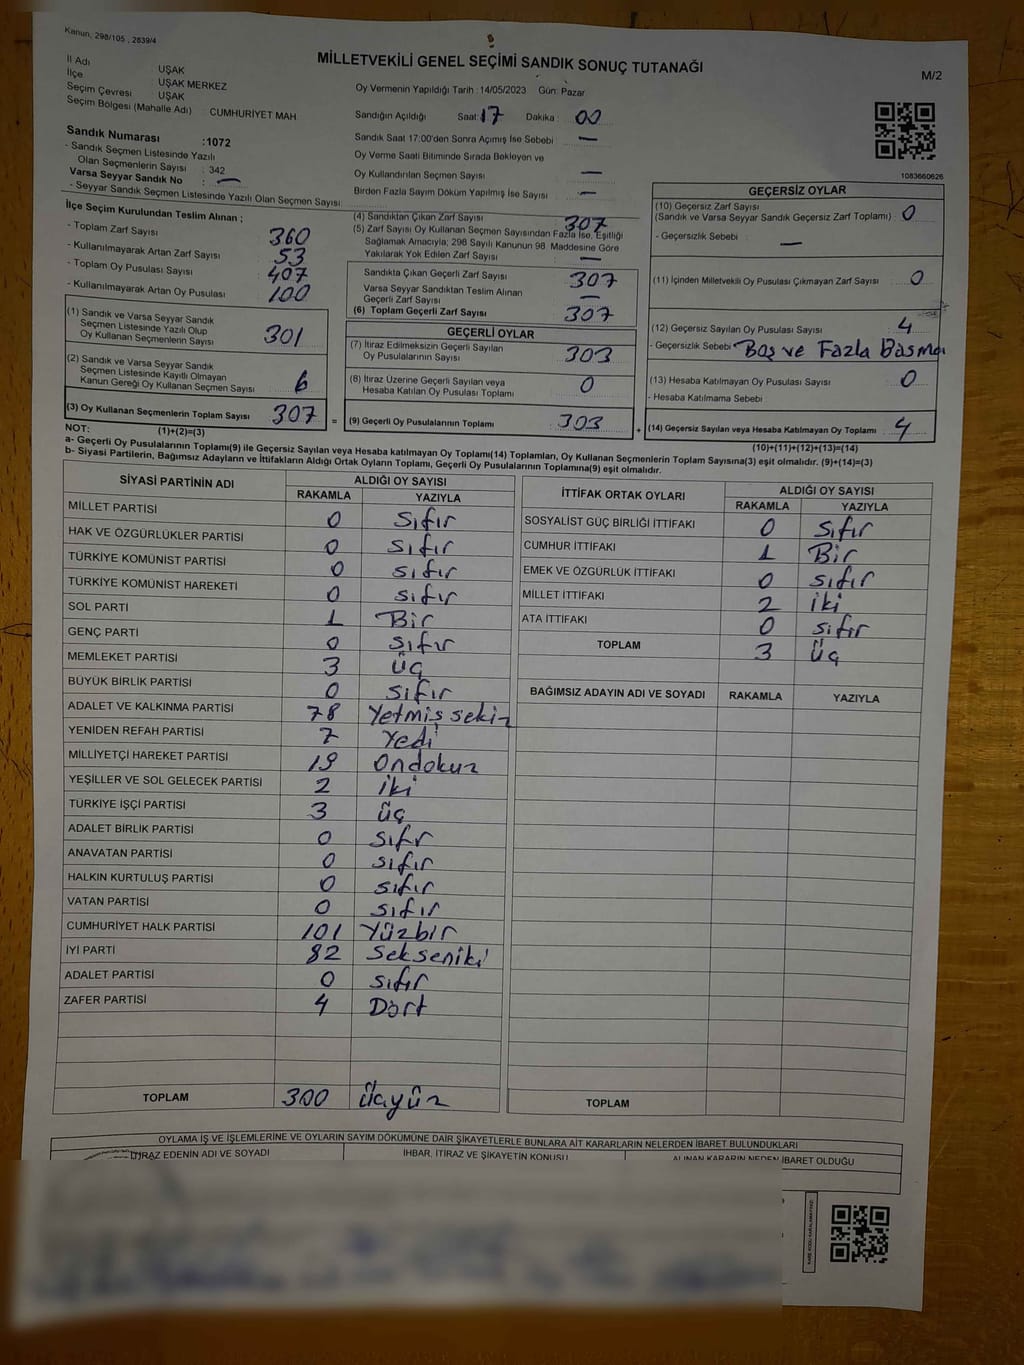 Kanun, 298/105 , 2839/4
MİLLETVEKİLİ GENEL SEÇİMİ SANDIK SONUÇ TUTANAĞI
M/2
İl Adı UŞAK
İlçe : UŞAK MERKEZ
Seçim Çevresi UŞAK
Seçim Bölgesi (Mahalle Adı) : CUMHURİYET MAH
Sandık Numarası :1072
- Sandık Seçmen Listesinde Yazılı
Olan Seçmenlerin Sayısı : 342
Varsa Seyyar Sandık No : —
- Seyyar Sandık Seçmen Listesinde Yazılı Olan Seçmen Sayısı:
Oy Vermenin Yapıldığı Tarih : 14/05/2023 Gün: Pazar
Sandığın Açıldığı Saat: 17 Dakika : 00
Sandık Saat 17:00'den Sonra Açımış İse Sebebi —
Oy Verme Saati Bitiminde Sırada Bekleyen ve
Oy Kullandırılan Seçmen Sayısı —
Birden Fazla Sayım Döküm Yapılmış İse Sayısı —
1083660626
İlçe Seçim Kurulundan Teslim Alınan ;
- Toplam Zarf Sayısı 360
- Kullanılmayarak Artan Zarf Sayısı 53
- Toplam Oy Pusulası Sayısı 407
- Kullanılmayarak Artan Oy Pusulası 100
(1) Sandık ve Varsa Seyyar Sandık
Seçmen Listesinde Yazılı Olup
Oy Kullanan Seçmenlerin Sayısı 301
(2) Sandık ve Varsa Seyyar Sandık
Seçmen Listesinde Kayıtlı Olmayan
Kanun Gereği Oy Kullanan Seçmen Sayısı 6
(3) Oy Kullanan Seçmenlerin Toplam Sayısı 307 =
(4) Sandıktan Çıkan Zarf Sayısı 307
(5) Zarf Sayısı Oy Kullanan Seçmen Sayısından Fazla İse, Eşitliği
Sağlamak Amacıyla; 298 Sayılı Kanunun 98. Maddesine Göre
Yakılarak Yok Edilen Zarf Sayısı —
Sandıkta Çıkan Geçerli Zarf Sayısı 307
Varsa Seyyar Sandıktan Teslim Alınan
Geçerli Zarf Sayısı —
(6) Toplam Geçerli Zarf Sayısı 307
GEÇERLİ OYLAR
(7) İtiraz Edilmeksizin Geçerli Sayılan
Oy Pusulalarının Sayısı 303
(8) İtiraz Üzerine Geçerli Sayılan veya
Hesaba Katılan Oy Pusulası Toplamı 0
(9) Geçerli Oy Pusulalarının Toplamı 303 +
GEÇERSİZ OYLAR
(10) Geçersiz Zarf Sayısı
(Sandık ve Varsa Seyyar Sandık Geçersiz Zarf Toplamı) : 0
- Geçersizlik Sebebi : —
(11) İçinden Milletvekili Oy Pusulası Çıkmayan Zarf Sayısı : 0
(12) Geçersiz Sayılan Oy Pusulası Sayısı : 4
- Geçersizlik Sebebi Boş ve Fazla Basma
(13) Hesaba Katılmayan Oy Pusulası Sayısı : 0
- Hesaba Katılmama Sebebi
(14) Geçersiz Sayılan veya Hesaba Katılmayan Oy Toplamı 4
NOT: (1)+(2)=(3)
(10)+(11)+(12)+(13)=(14)
a- Geçerli Oy Pusulalarının Toplamı(9) ile Geçersiz Sayılan veya Hesaba katılmayan Oy Toplamı(14) Toplamları, Oy Kullanan Seçmenlerin Toplam Sayısına(3) eşit olmalıdır. (9)+(14)=(3)
b- Siyasi Partilerin, Bağımsız Adayların ve İttifakların Aldığı Ortak Oyların Toplamı, Geçerli Oy Pusulalarının Toplamına(9) eşit olmalıdır.
SİYASİ PARTİNİN ADI ALDIĞI OY SAYISI
RAKAMLA YAZIYLA
MİLLET PARTİSİ 0 Sıfır
HAK VE ÖZGÜRLÜKLER PARTİSİ 0 Sıfır
TÜRKİYE KOMÜNİST PARTİSİ 0 Sıfır
TÜRKİYE KOMÜNİST HAREKETİ 0 Sıfır
SOL PARTİ 1 Bir
GENÇ PARTİ 0 Sıfır
MEMLEKET PARTİSİ 3 üç
BÜYÜK BİRLİK PARTİSİ 0 Sıfır
ADALET VE KALKINMA PARTİSİ 78 Yetmiş sekiz
YENİDEN REFAH PARTİSİ 7 Yedi
MİLLİYETÇİ HAREKET PARTİSİ 19 Ondokuz
YEŞİLLER VE SOL GELECEK PARTİSİ 2 iki
TÜRKİYE İŞÇİ PARTİSİ 3 üç
ADALET BİRLİK PARTİSİ 0 Sıfr
ANAVATAN PARTİSİ 0 Sıfır
HALKIN KURTULUŞ PARTİSİ 0 Sıfır
VATAN PARTİSİ 0 Sıfır
CUMHURİYET HALK PARTİSİ 101 Yüzbir
İYİ PARTİ 82 Sekseniki
ADALET PARTİSİ 0 Sıfır
ZAFER PARTİSİ 4 Dört
TOPLAM 300 üçyüz
İTTİFAK ORTAK OYLARI ALDIĞI OY SAYISI
RAKAMLA YAZIYLA
SOSYALİST GÜÇ BİRLİĞİ İTTİFAKI 0 Sıfır
CUMHUR İTTİFAKI 1 Bir
EMEK VE ÖZGÜRLÜK İTTİFAKI 0 Sıfır
MİLLET İTTİFAKI 2 iki
ATA İTTİFAKI 0 Sıfır
TOPLAM 3 üç
BAĞIMSIZ ADAYIN ADI VE SOYADI RAKAMLA YAZIYLA
TOPLAM
OYLAMA İŞ VE İŞLEMLERİNE VE OYLARIN SAYIM DÖKÜMÜNE DAİR ŞİKAYETLERLE BUNLARA AİT KARARLARIN NELERDEN İBARET BULUNDUKLARI
İTİRAZ EDENİN ADI VE SOYADI İHBAR, İTİRAZ VE ŞİKAYETİN KONUSU ALINAN KARARIN NEDEN İBARET OLDUĞU